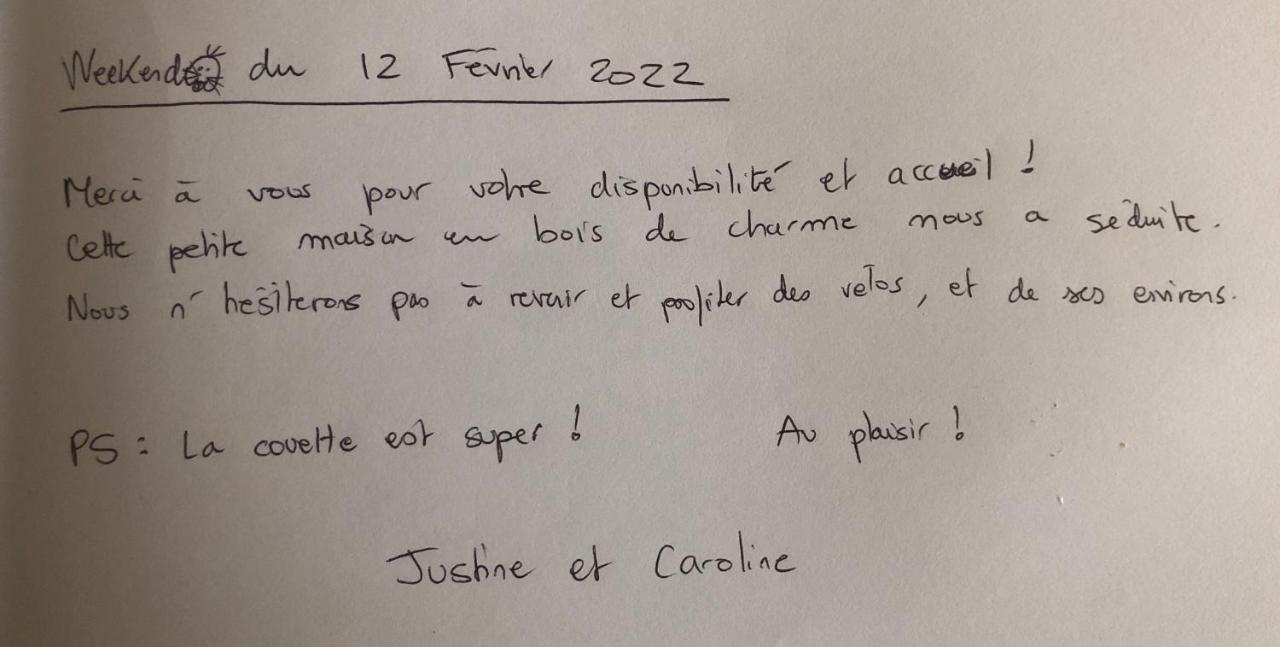 Weekend du 12 Février 2022
Merci à vous pour votre disponibilité et accueil !
Cette petite maison en bois de charme nous a séduite.
Nous n'hésiterons pas à revenir et profiter des vélos, et de ses environs.
PS : La couette est super ! Au plaisir !
Justine et Caroline